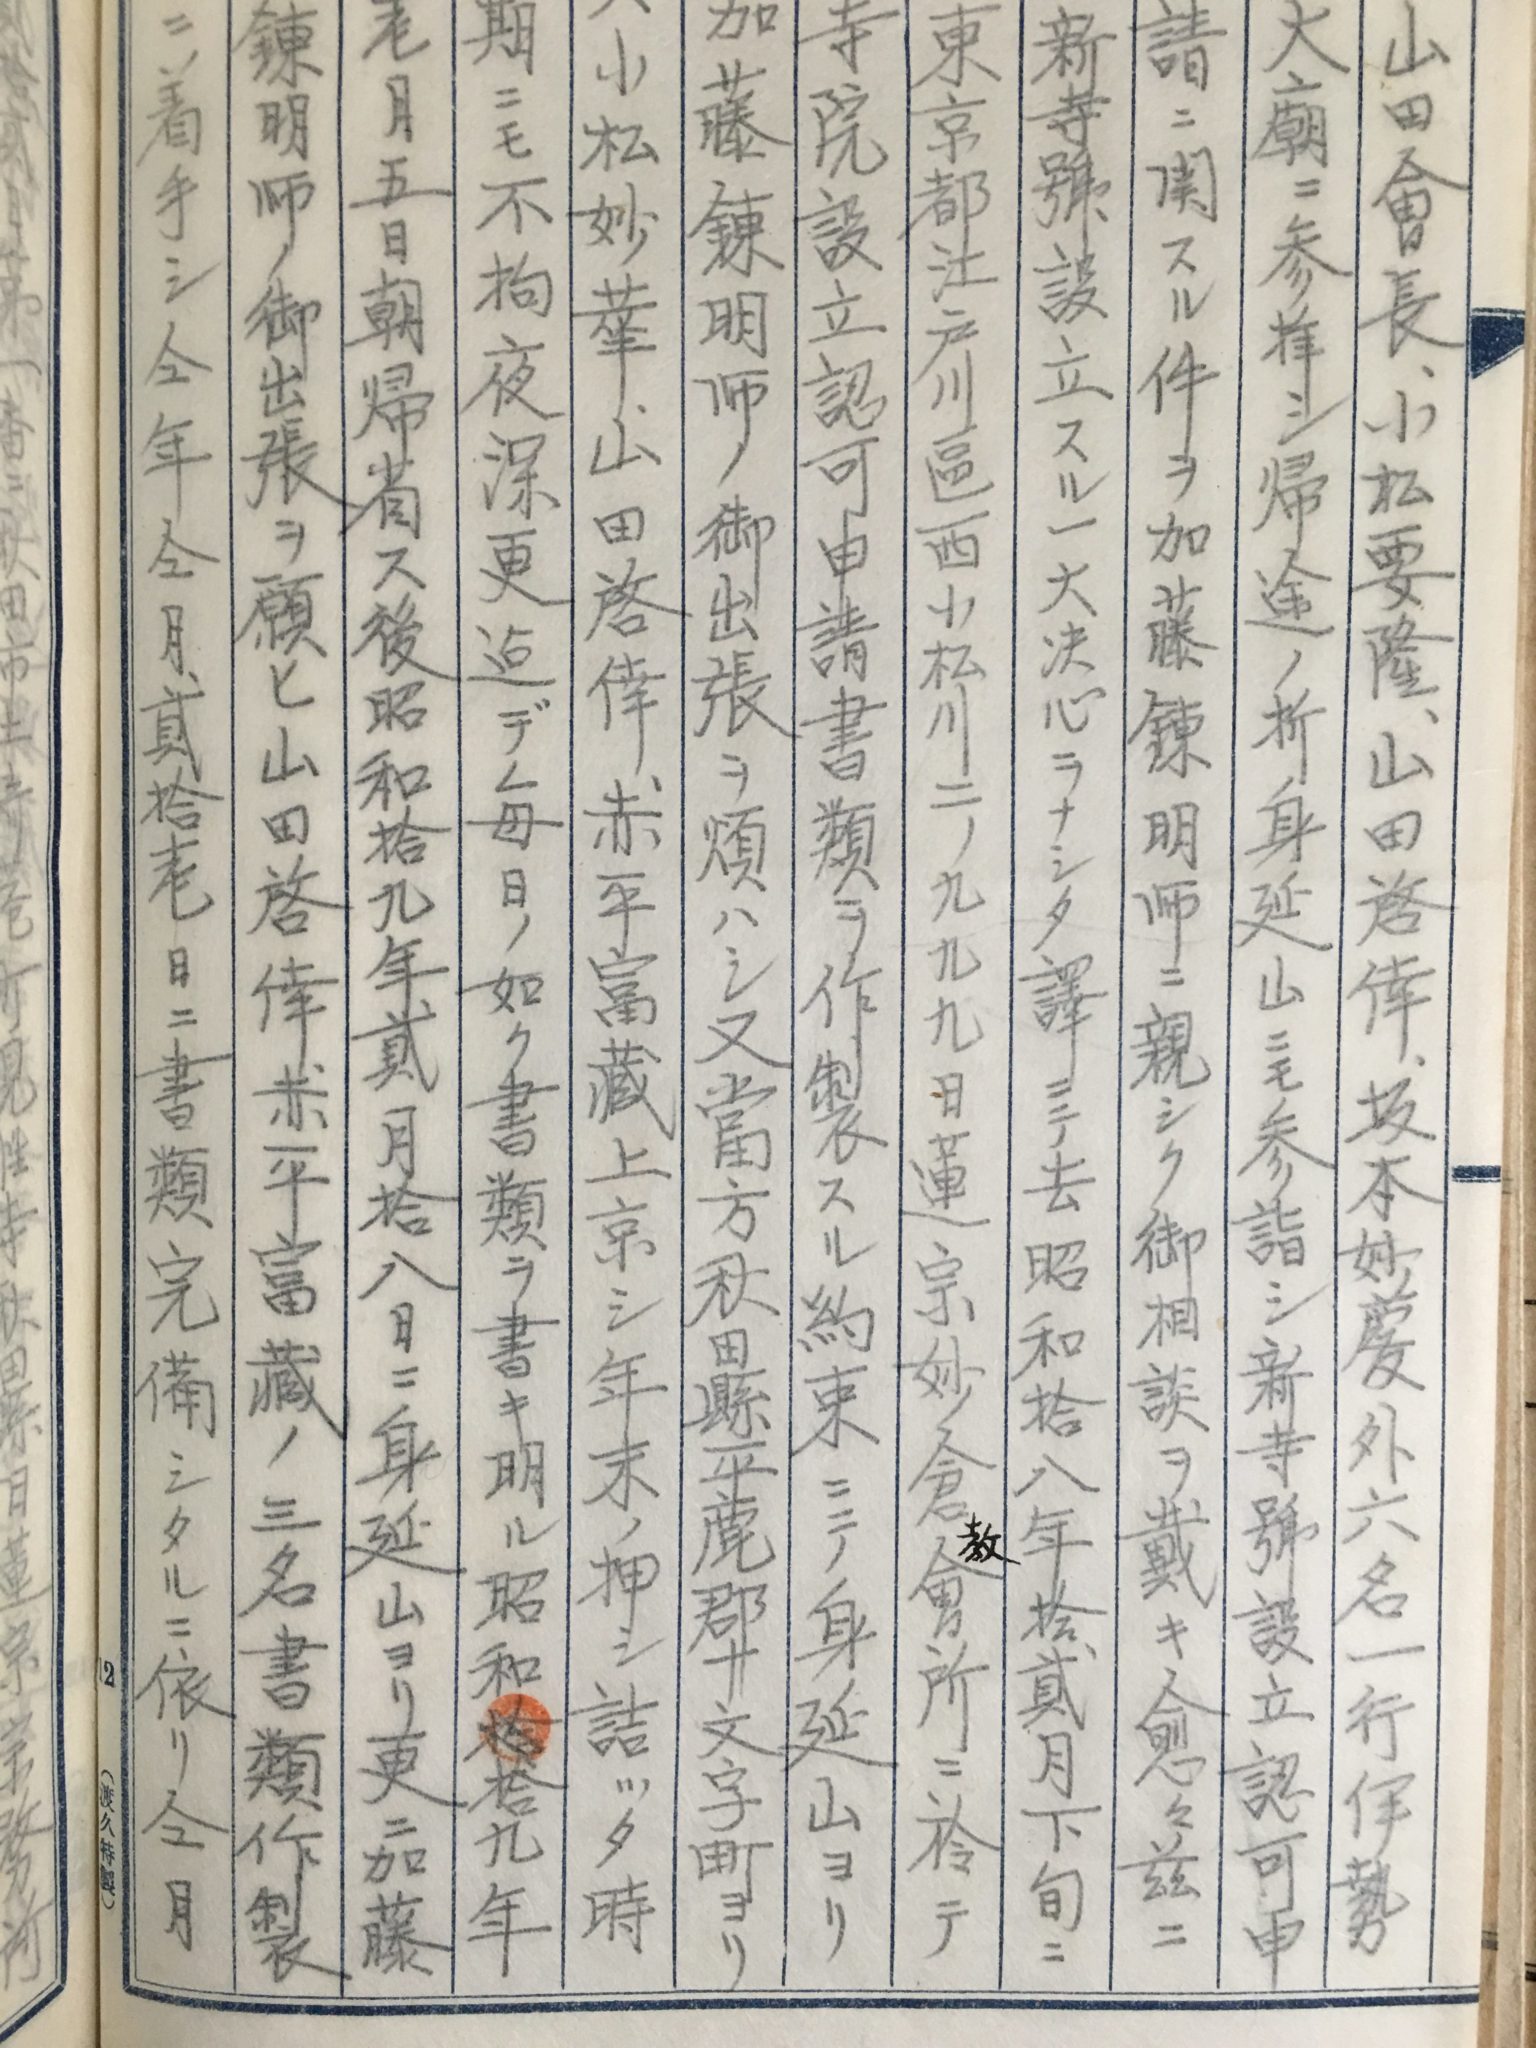 山田會長、小松要隆、山田啓倖、坂本妙慶外六名一行伊勢
大廟ニ参拝シ帰途ノ折身延山ニモ参詣シ新寺號設立認可申
請ニ関スル件ヲ加藤錬明師ニ親シク御相談ヲ戴キ愈々茲ニ
新寺號設立スル一大決心ヲナシタ譯ニテ去昭和拾八年拾貳月下旬ニ
東京都江戸川區西小松川二ノ九九九日蓮宗妙倉教會所ニ於テ
寺院設立認可申請書類ヲ作製スル約束ニテ身延山ヨリ
加藤錬明師ノ御出張ヲ煩ハシ又當方秋田縣平鹿郡十文字町ヨリ
小松妙華、山田啓倖、赤平富藏上京シ年末ノ押シ詰ッタ時
期ニモ不拘夜深更迠デ毎日ノ如ク書類ヲ書キ明ル昭和拾九年
壱月五日朝帰省ス後昭和拾九年貳月拾八日ニ身延山ヨリ更ニ加藤
錬明師ノ御出張ヲ願ヒ山田啓倖赤平富藏ノ三名書類作製
ニ着手シ仝年仝月貳拾壱日ニ書類完備シタルニ依リ仝月
2